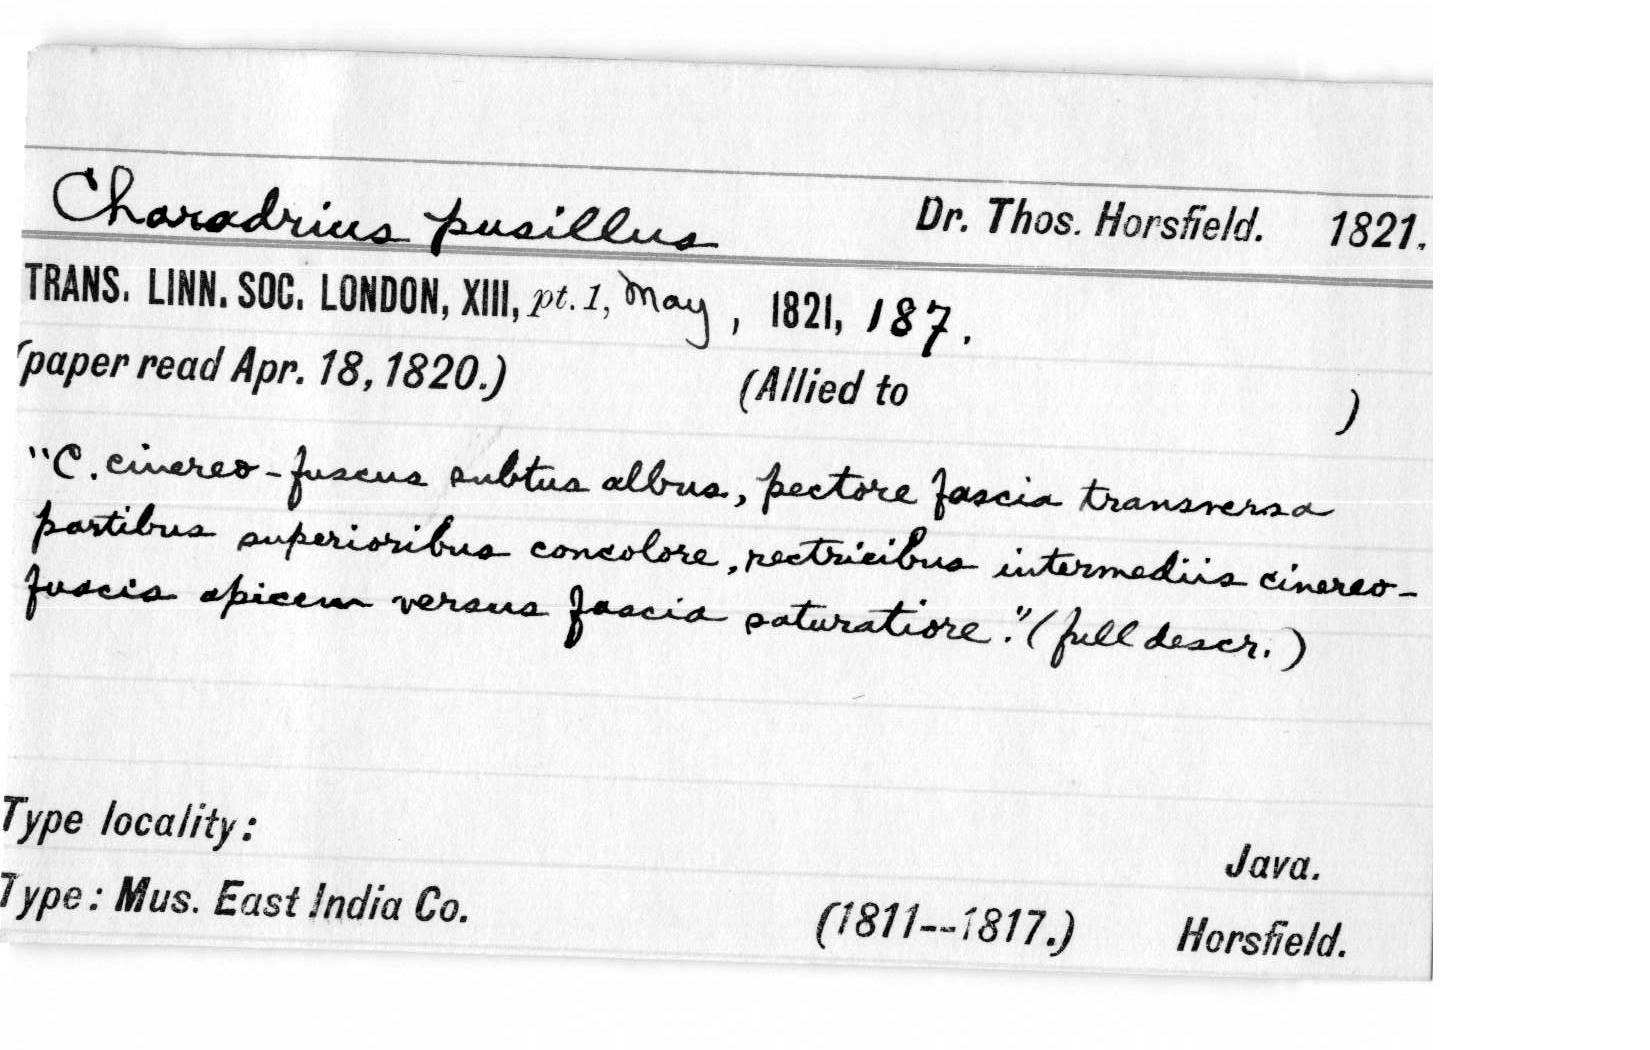 Charadrius pusillus Dr. Thos. Horsfield. 1821.
TRANS. LINN. SOC. LONDON, XIII, pt. 1, May, 1821, 187.
(paper read Apr. 18, 1820.) (Allied to )
"C. cinereo-fuscus subtus albus, pectore fascia transversa
partibus superioribus concolore, rectricibus intermediis cinereo-
fuscis apicem versus fascia saturatiore." (full descr.)
Type locality: Java.
Type: Mus. East India Co. (1811--1817.) Horsfield.